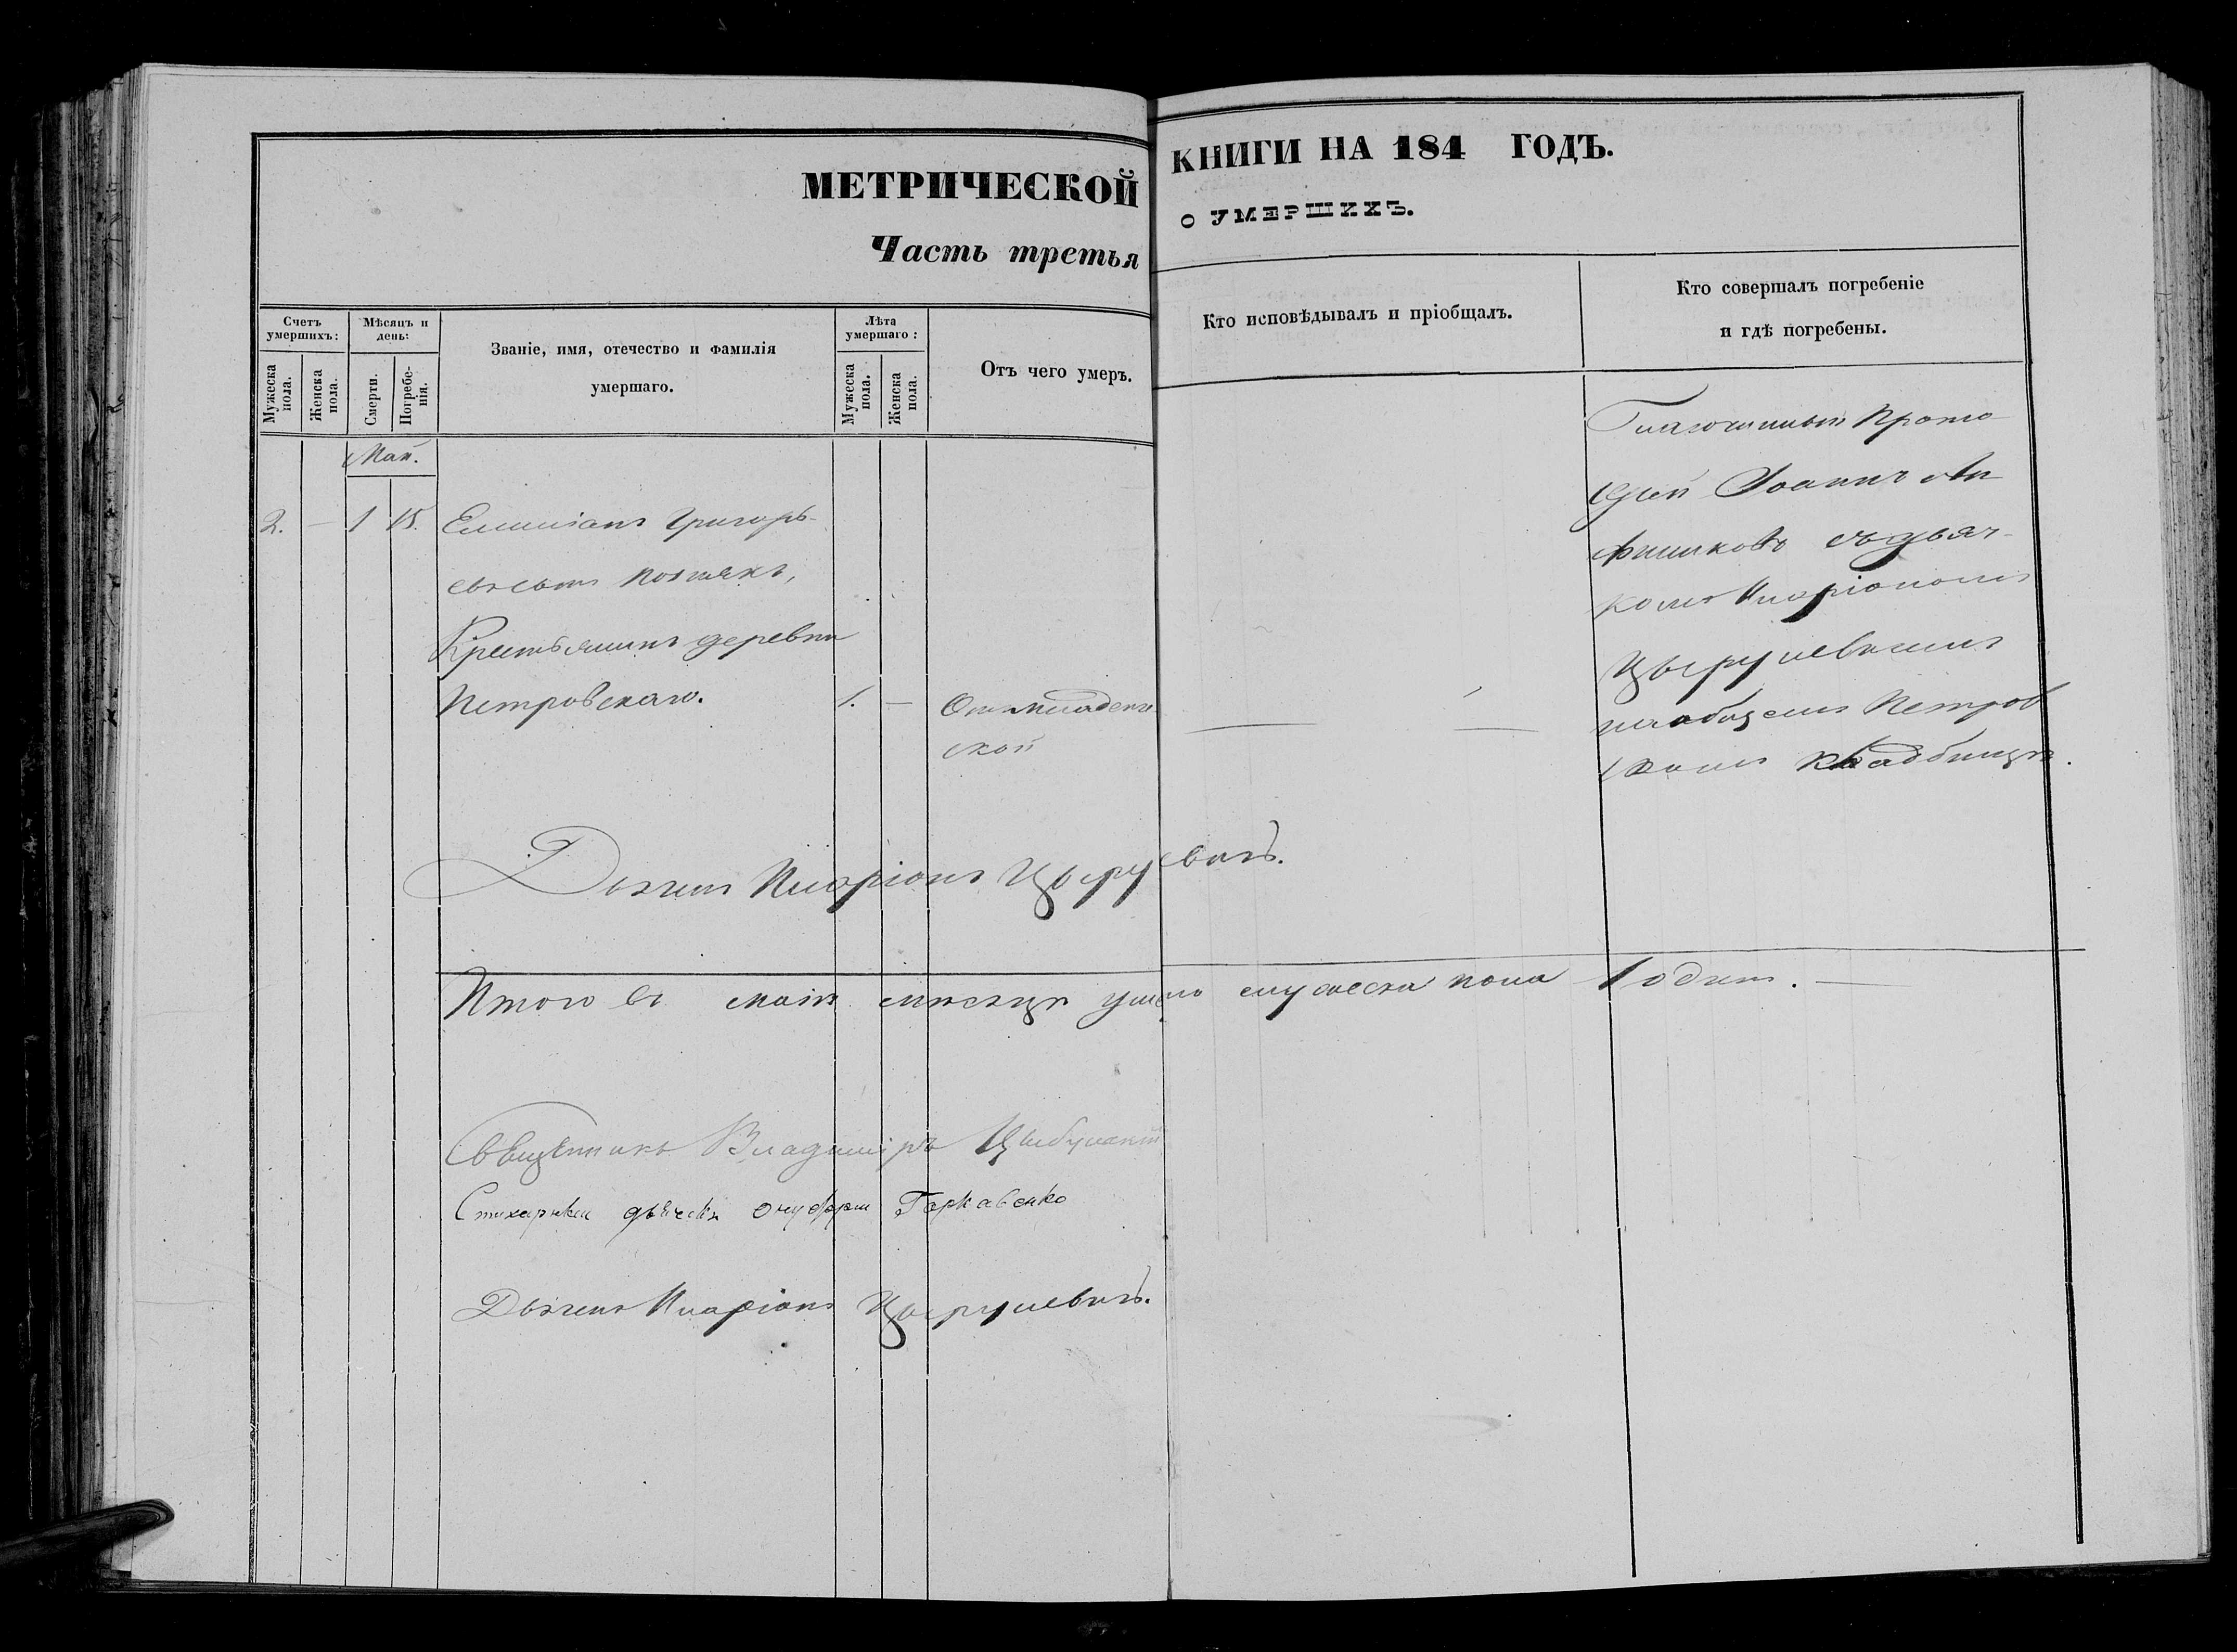 МЕТРИЧЕСКОЙ КНИГИ НА 184 ГОДЪ.
Часть третья о УМЕРШИХЪ.
Счетъ умершихъ:
Мужеска пола.
Женска пола.
Мѣсяцъ и день:
Смерти.
Погребенія.
Званіе, имя, отечество и фамилія
умершаго.
Лѣта умершаго:
Мужеска пола.
Женска пола.
Отъ чего умеръ.
Кто исповѣдывалъ и пріобщалъ.
Кто совершалъ погребеніе
и гдѣ погребены.
Май.
2. — 1 15. Емиліанъ Григорь-
евъ сынъ
Крестьянинъ деревни
Петровскаго. 1. — Отъ младенче-
ской
Благочинный Прото
іерей Іоаннъ Ан
фимковъ съ дьяч-
комъ Иларіономъ
на общемъ Петров
скомъ кладбищѣ.
Дьячекъ Иларіонъ
Итого въ маіѣ мѣсяцѣ умерло мужеска пола 1 одинъ. —
Священникъ Владиміръ
Стихарный дьячекъ Онуфрій Гаркавенко
Дьячекъ Иларіонъ